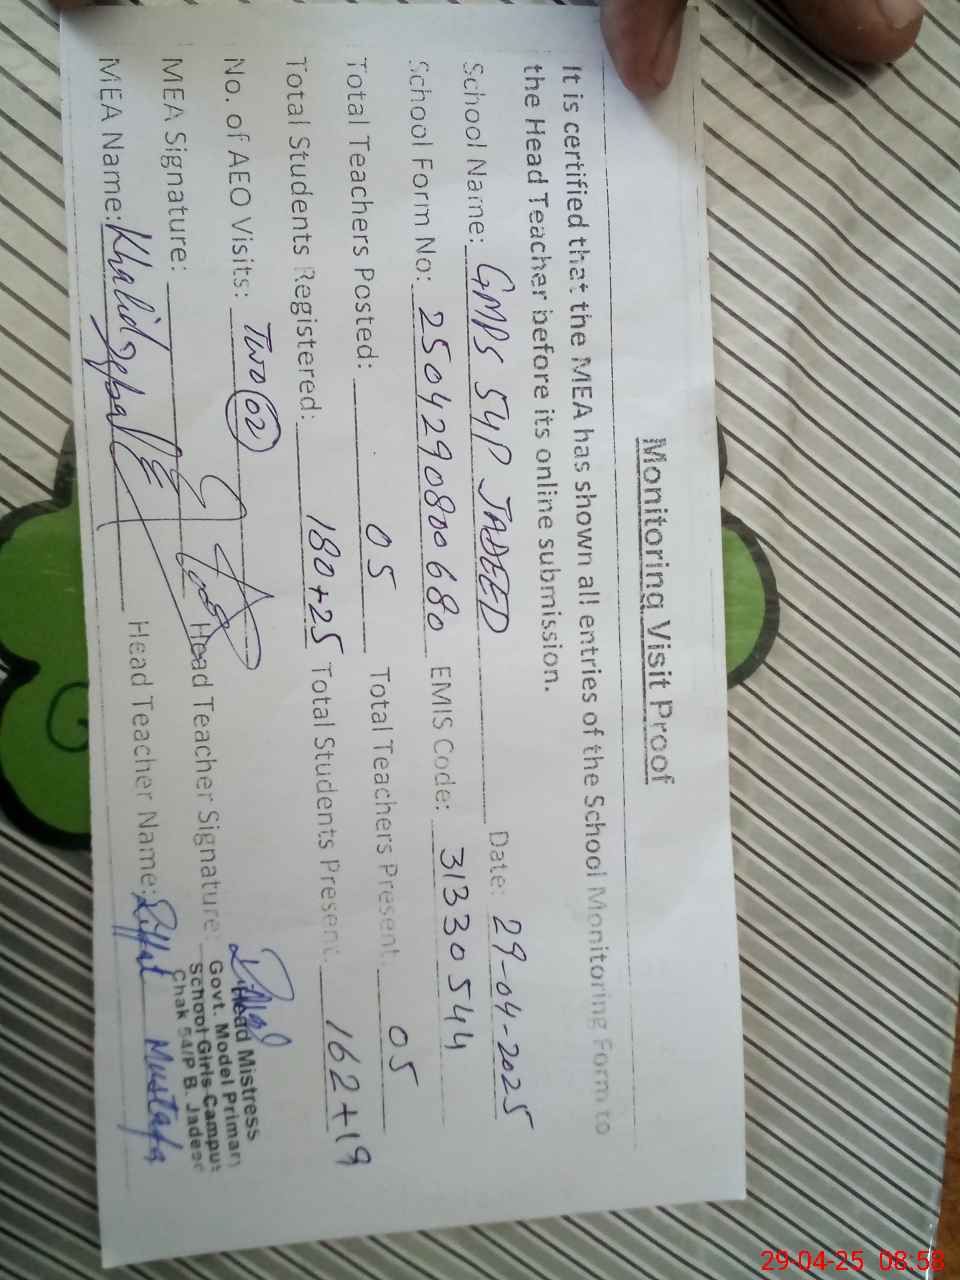 Monitoring Visit Proof
It is certified that the MEA has shown all entries of the School Monitoring Form to
the Head Teacher before its online submission.
School Name: GMPS 54P JADEED Date: 29-04-2025
School Form No: 2504290800680 EMIS Code: 31330544
Total Teachers Posted: 05 Total Teachers Present: 05
Total Students Registered: 180+25 Total Students Present: 162+19
No. of AEO Visits: Two 02
MEA Signature: Head Teacher Signature:
Head Mistress
Govt. Model Primary
School Girls Campus
Chak 54/P B. Jadeed
MEA Name: Khalid Iqbal Head Teacher Name: Riffat Mustafa
29-04-25 08:58